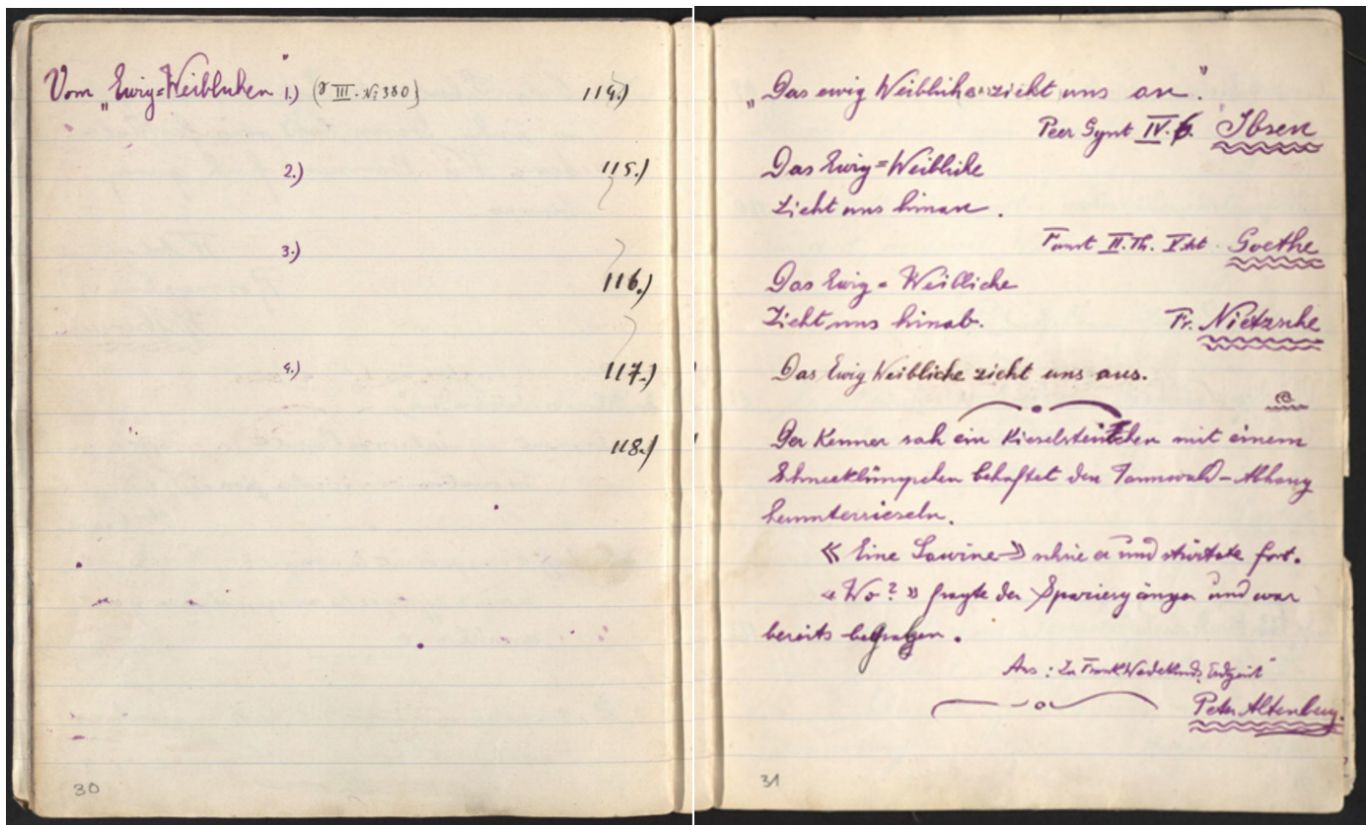 Vom „Ewig=Weiblichen" 1.) (III. № 380) 114.)
2.) 115.)
3.)
116.)
4.) 117.)
118.)
30
„Das ewig Weibliche zieht uns an."
Peer Gynt IV. 6. Ibsen
Das Ewig=Weibliche
Zieht uns hinan.
Faust II. Th. V. Akt. Goethe
Das Ewig=Weibliche
Zieht uns hinab. Fr. Nietzsche
Das Ewig Weibliche zieht uns aus.
Der Kenner sah ein Kieselsteinchen mit einem
Schneeklümpchen behaftet den Tannwald-Abhang
herunterrieseln.
« Eine Lawine » schrie er und stürtzte fort.
« Wo? » fragte der Spaziergänger und war
bereits begraben.
Aus: Zu Frank Wedekinds
Peter Altenberg.
31